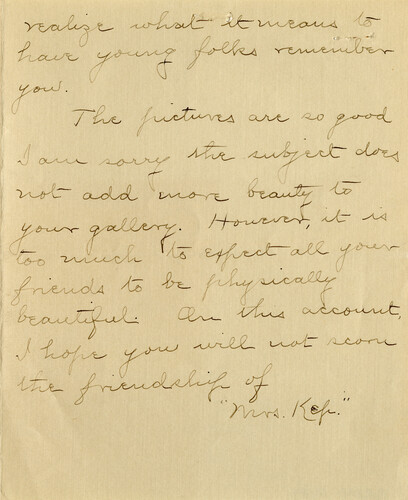 realize what it means to
have young folks remember
you.
The pictures are so good
I am sorry the subject does
not add more beauty to
your gallery. However, it is
too much to expect all your
friends to be physically
beautiful. On this account,
I hope you will not scorn
the friendship of
"Mrs. Kep."